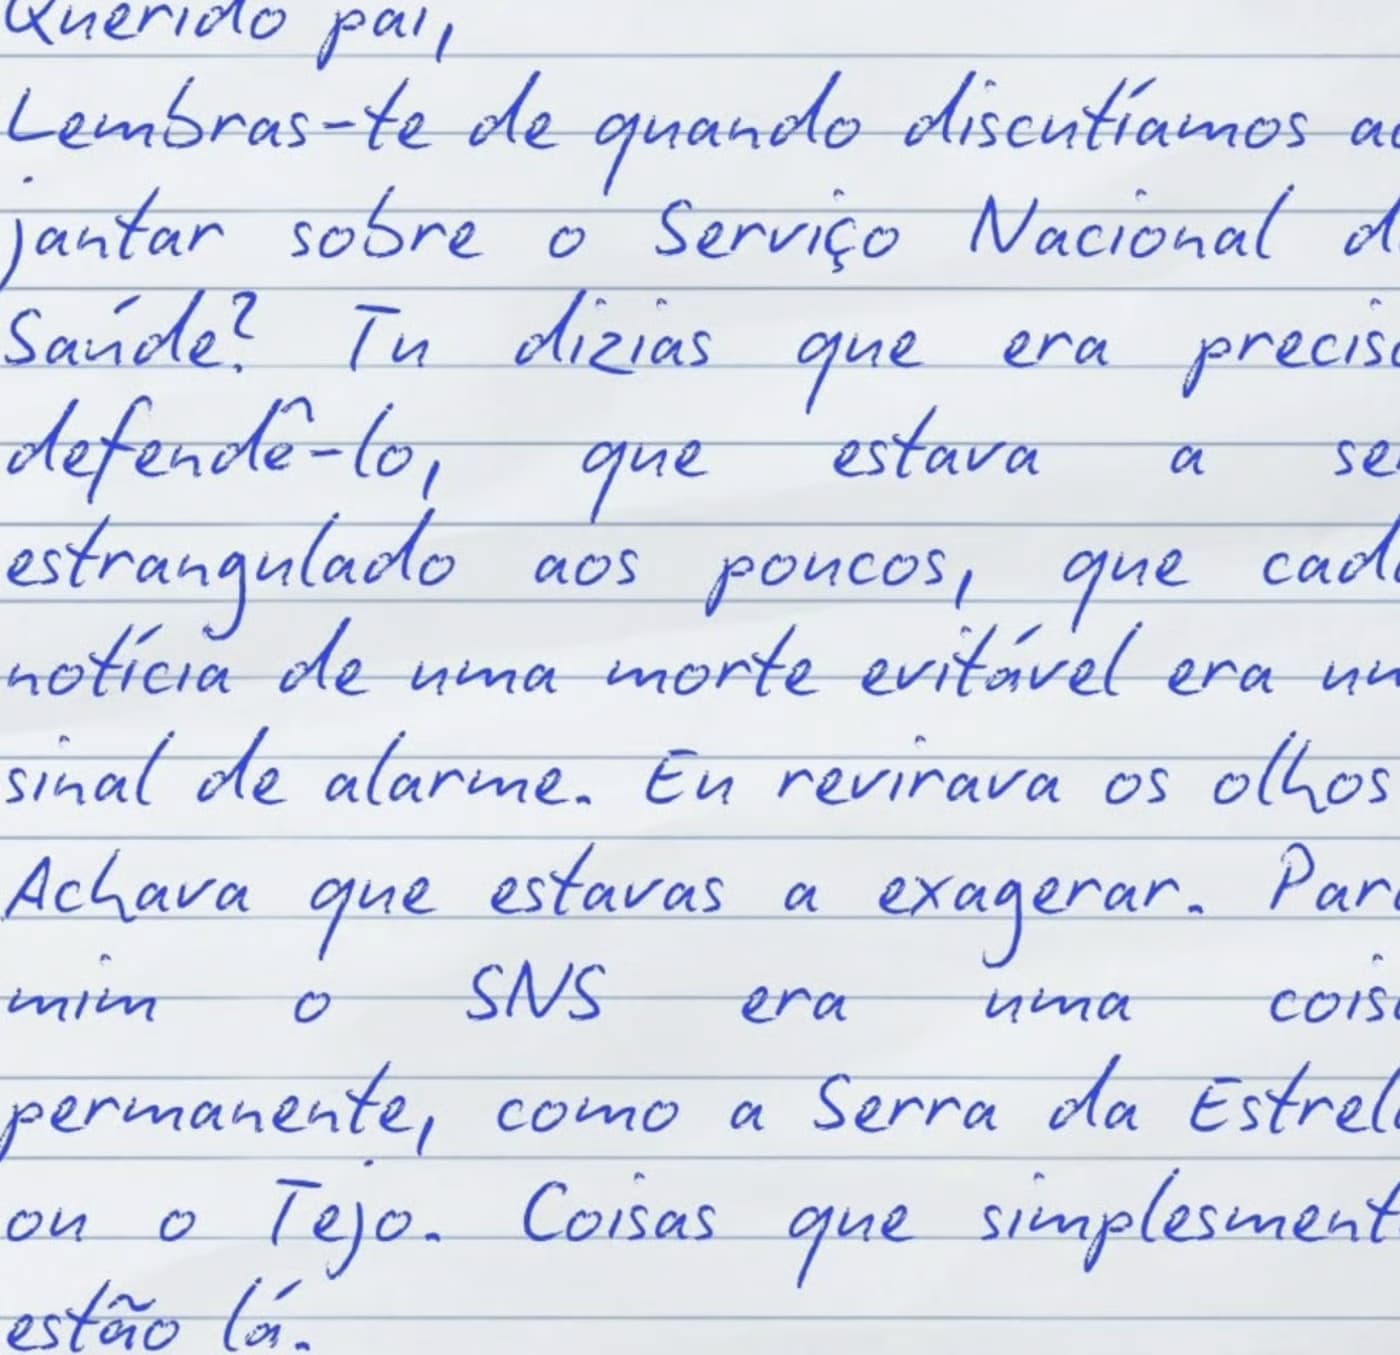 Querido pai,
Lembras-te de quando discutíamos ao
jantar sobre o Serviço Nacional d
Saúde? Tu dizias que era preciso
defendê-lo, que estava a se
estrangulado aos poucos, que cad
notícia de uma morte evitável era um
sinal de alarme. Eu revirava os olhos
Achava que estavas a exagerar. Par
mim o SNS era uma cois
permanente, como a Serra da Estrel
ou o Tejo. Coisas que simplesment
estão lá.